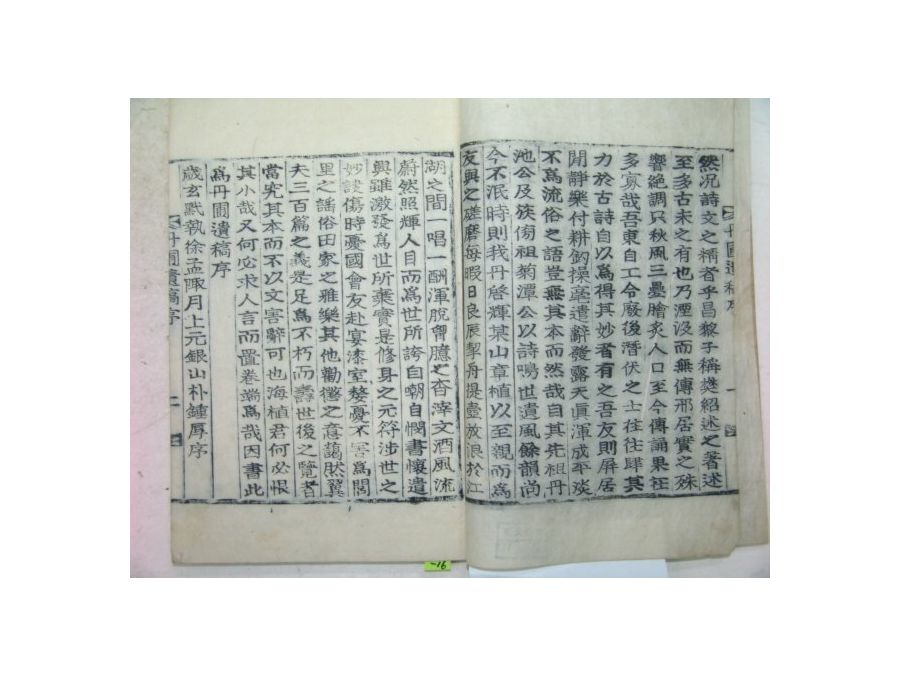 然況詩文之稱者乎昌黎子稱樊紹述之著述
至多古未之有也乃湮没而無傳邢居實之殊
響絶調只秋風三疊膾炙人口至今傳誦果在
多寡哉吾東自工令廢後潛伏之士往往肆其
力於古詩自以爲得其妙者有之吾友則屏居
閒靜樂付耕釣操毫遣辭發露天眞渾成平淡
不爲流俗之語豈無其本而然哉自其先祖丹
池公及族傍祖菊潭公以詩鳴世遺風餘韻尚
今不泯時則我丹啓輝某山章植以至親而爲
友與之磋磨每暇日良辰挈舟提壺放浪於江
丹圃遺稿序
一
湖之間一唱一酬渾脫會臆之杳滓文酒風流
蔚然照輝人目而爲世所誇自嘲自憫書懷遣
興雖激發爲世所棄實是修身之元符涉世之
妙談傷時憂國會友赴宴漆室嫠憂不害爲閭
里之謠俗田家之雅樂其他勸懲之意藹然翼
夫三百篇之義是足爲不朽而壽世後之覽者
當究其本而不以文害辭可也海植君何必恨
其小哉又何必求人言而置卷端爲哉因書此
爲丹圃遺稿序
歲玄黓執徐孟陬月上元銀山朴鍾厚序
丹圃遺稿序
二
-16